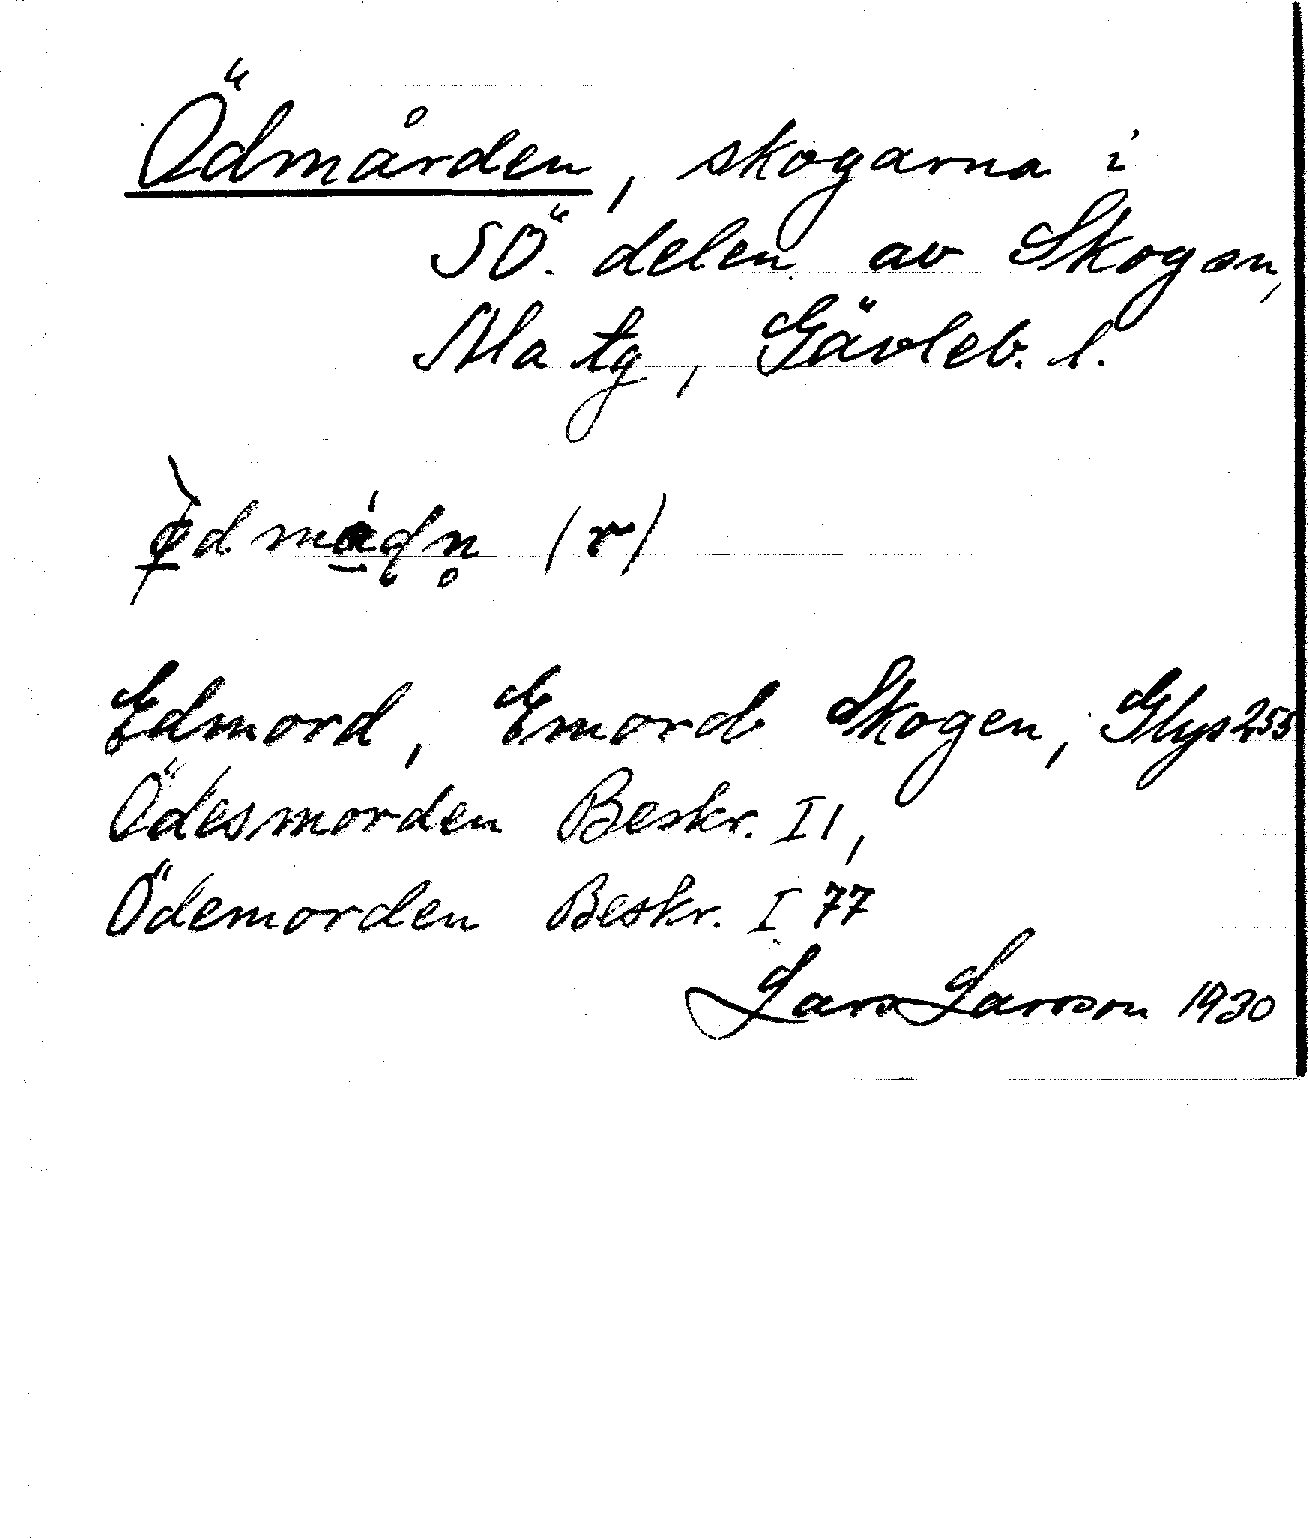 Ödmården, skogarna i
SÖ. delen av Skogsn,
Ala tg, Gävleb. l.
(r)
Edmord, Emords Skogen, Glys 255
Ödesmorden Beskr. II,
Ödemorden Beskr. I 77
Lars Larsson 1930